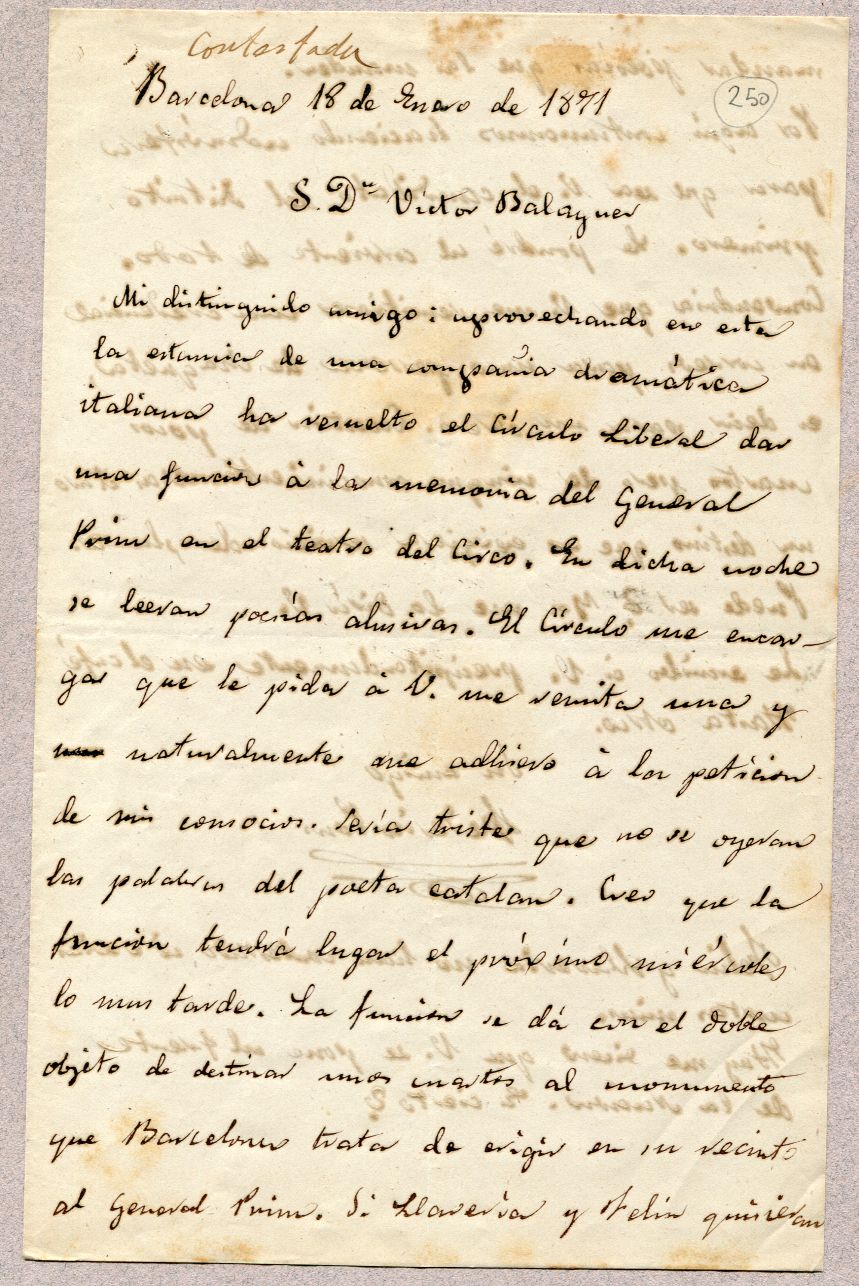 Contestada
Barcelona 18 de Enero de 1871
250
S. Dn Víctor Balaguer
Mi distinguido amigo: aprovechando en esta
la estancia de una compañia dramática
italiana ha resuelto el Círculo Liberal dar
una funcion á la memoria del General
Prim en el teatro del Circo. En dicha noche
se leeran poesías alusivas. El Círculo me encar-
ga que le pida á V. me remita una y
naturalmente me adhiero á la peticion
de mis consocios. Sería triste que no se oyeran
las palabras del poeta catalan. Creo que la
funcion tendrá lugar el próximo miércoles
lo mas tarde. La funcion se dá con el doble
objeto de destinar unos cuartos al monumento
que Barcelona trata de erigir en su recinto
al General Prim. Si Llavería y Feliu quisieran